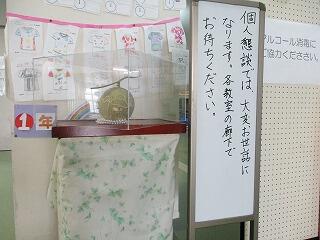 個人懇談では、大変お世話に
なります。各教室の廊下で
お待ちください。
アルコール消毒に
ご協力ください。
1年